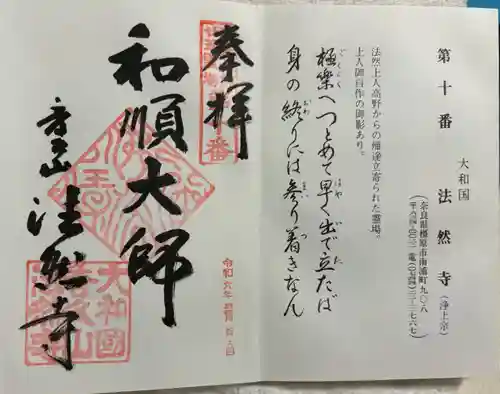 第十番
大和国
法然寺(浄土宗)
(奈良県橿原市南浦町九〇八
法然上人高野からの帰途立寄られた霊場。
上人御自作の御影あり。
極楽へつとめて早く出で立たば
身の終りには参り着きなん
奉拝
和順大師
香山
法然寺
大和国
令和六年